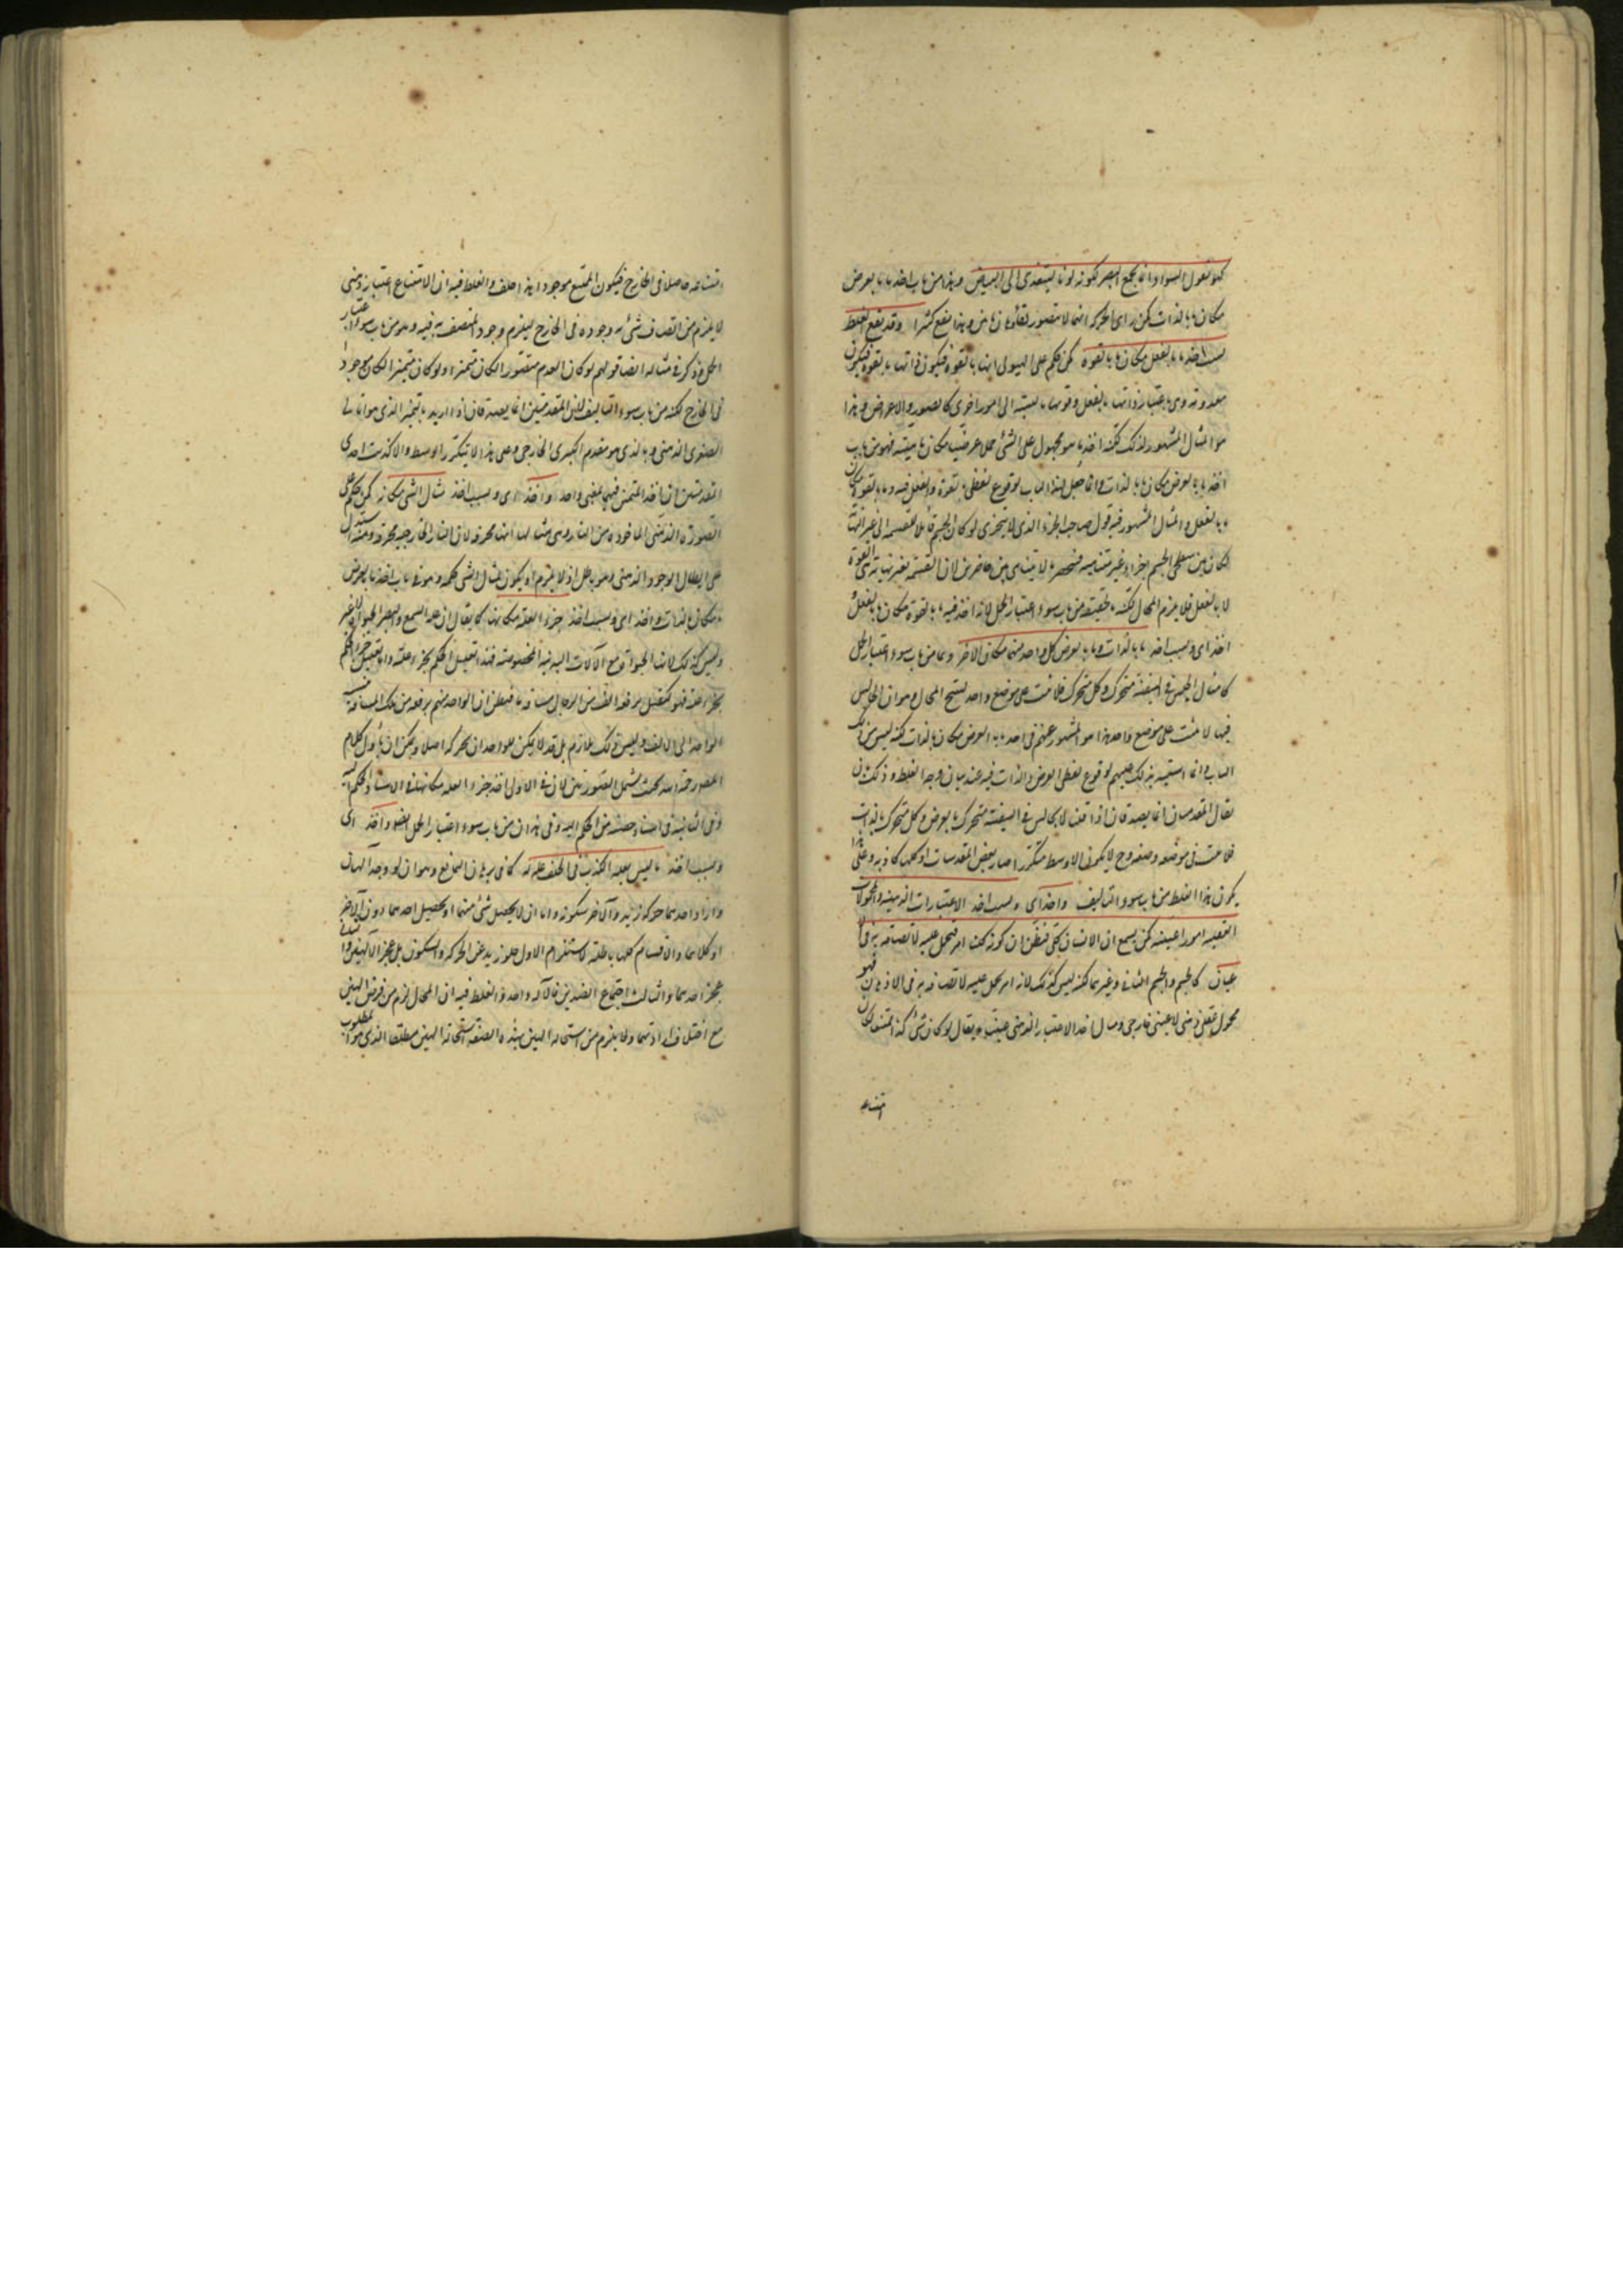 كمن يقول السواد انما يجمع البصر لكونه لونا ليتعدى الى البياض وهذا من باب اخذ ما بالعرض
مكان ما بالذات كمن راى الحركة انها لا يتصور بقاؤها زمانين وهذا يقع كثيرا وقد يقع الغلط
بسبب اخذ ما بالفعل مكان ما بالقوة كمن حكم على الهيولى انها بالقوة فيكون ذاتها بالقوة فيكون
معدومة وهى باعتبار ذاتها بالفعل وقوتها بالنسبة الى امور اخرى كالصور والاعراض وهذا
هو المثال المشهور لذلك لكنه اخذ ما هو محمول على الشئ حملا عرضيا مكان ماهيته فهو من باب
اخذ ما بالعرض مكان ما بالذات وانما جعل لهذا الباب لوقوع لفظى القوة والفعل فيه وما بالقوة مكان
ما بالفعل والمثال المشهور فيه قول صاحب الجزء الذى لا يتجزى لو كان الجسم قابلا للقسمة الى غير النهاية
لكان بين سطحى الجسم اجزاء غير متناهية فينحصر ما لا يتناهى بين حاصرين لان القسمة بغير نهاية هى بالقوة
لا بالفعل فلا يلزم المحال لكنه بالحقيقة من باب سوء اعتبار الحمل لانه اخذ فيه ما بالقوة مكان ما بالفعل
اخذ اى وبسبب اخذ ما بالذات وما بالعرض كل واحد منهما مكان الاخر وهما من باب سوء اعتبار الحمل
كما يقال الجالس فى السفينة متحرك وكل متحرك فلا يثبت على موضع واحد لينتج المحال وهو ان الجالس
فيها لا يثبت على موضع واحد هذا هو المشهور عندهم فى اخذ ما بالعرض مكان ما بالذات لكنه ليس من ذلك
الباب وانما اشتبه ذلك عليهم لوقوع لفظى العرض والذات فيه عند بيان وجه الغلط وذلك بان
يقال المقدمتان انما يصدقان اذا قلنا الجالس فى السفينة متحرك بالعرض وكل متحرك بالذات
فلا يثبت فى موضعه وضعه وح لا يكون الاوسط متكررا صار بعض المقدمات او كلها كاذبة وعلى هذا
يكون هذا الغلط من باب سوء التأليف واخذ اى وبسبب اخذ الاعتبارات الذهنية والمحمولات
العقلية امورا عينية كمن يسمع ان الانسان كلى فيظن ان كونه كليا امر يحمل عليه لاتصافه به فى الا
عيان كالجسم والجسم النامى وغيرهما لكنه ليس كذلك لانه امر يحمل عليه لاتصافه به فى الاذهان فهو
محمول عقلى ذهنى لا عينى خارجى ومثال اخذ الاعتبار الذهنى عينيا ما يقال لو كان شئ كذا ممتنعا لكان
امتناعه
امتناعه حاصلا فى الخارج فيكون الممتنع موجودا هذا خلف والغلط فيه ان الامتناع اعتبار ذهنى
لا يلزم من اتصاف شئ به وجوده فى الخارج ليلزم وجود المتصف به فيه وهو من باب سوء اعتبار
الحمل وذكر فى مثاله ايضا قولهم لو كان العدم متصورا لكان متميزا ولو كان متميزا لكان موجودا
فى الخارج لكنه من باب سوء التأليف لان المقدمتين انما يصدقان اذا اريد بالتميز الذى هو تالى
الصغرى الذهنى وبالذى هو مقدم الكبرى الخارجى وعلى هذا لا يتكرر الاوسط والا كذبت احدى
المقدمتين ان اخذ المتميز فيهما بمعنى واحد واخذ اى وبسبب اخذ مثال الشئ مكانه كمن حكم على
الصورة الذهنى الماخوذة من النار وهى مثالها انها محرقة لان النار الخارجية محرقة ومنه استدل
على ابطال الوجود الذهنى وهو باطل اذ لا يلزم ان يكون لمثال الشئ حكمه وهو فى باب اخذ ما بالعرض
مكان ما بالذات واخذ اى وبسبب اخذ جزء العلة مكانها كما يقال ان علة السمع والبصر الحيوة لا غير
وليس كذلك لانها الحيوة مع الآلات البدنية المخصوصة فهذا تعليل الحكم بجزء علته واما تعليق جزء الحكم
بجزء علته فلو كتعليل رفع الف من الرجال مسافة ما فيظن ان الواحد منهم يرفعه من تلك المسافة بنسبة
الواحد الى الالف وليس ذلك بلازم بل قد لا يمكن للواحد ان يحركه اصلا ويمكن ان يأول كلام
المصنف رحمه الله بحيث يشمل الصورتين لان فى الاولى اخذ جزء العلة مكانها فى اسناد الحكم اليه
وفى الثانية فى اسناد حصته من الحكم اليه وفى هذان من باب سوء اعتبار الحمل ايضا واخذ اى
وبسبب اخذ ما ليس بعلة الكذب فى الخلف علة له كما فى برهان التمانع وهو ان لو وجد الهان
واراد احدهما حركة زيد والآخر سكونه فاما ان لا يحصل شئ منهما او يحصل احدهما دون الآخر
او كلاهما والاقسام كلها باطلة لاستلزام الاول خلو زيد عن الحركة والسكون بل عجز الالهين والثانى
عجز احدهما والثالث اجتماع الضدين فالآله واحد والغلط فيه ان المحال لزم من فرض الهين
مع اختلاف ارادتهما ولا يلزم من استحالة الهين بهذه الصفة استحالة الهين مطلقا الذى هو المطلوب